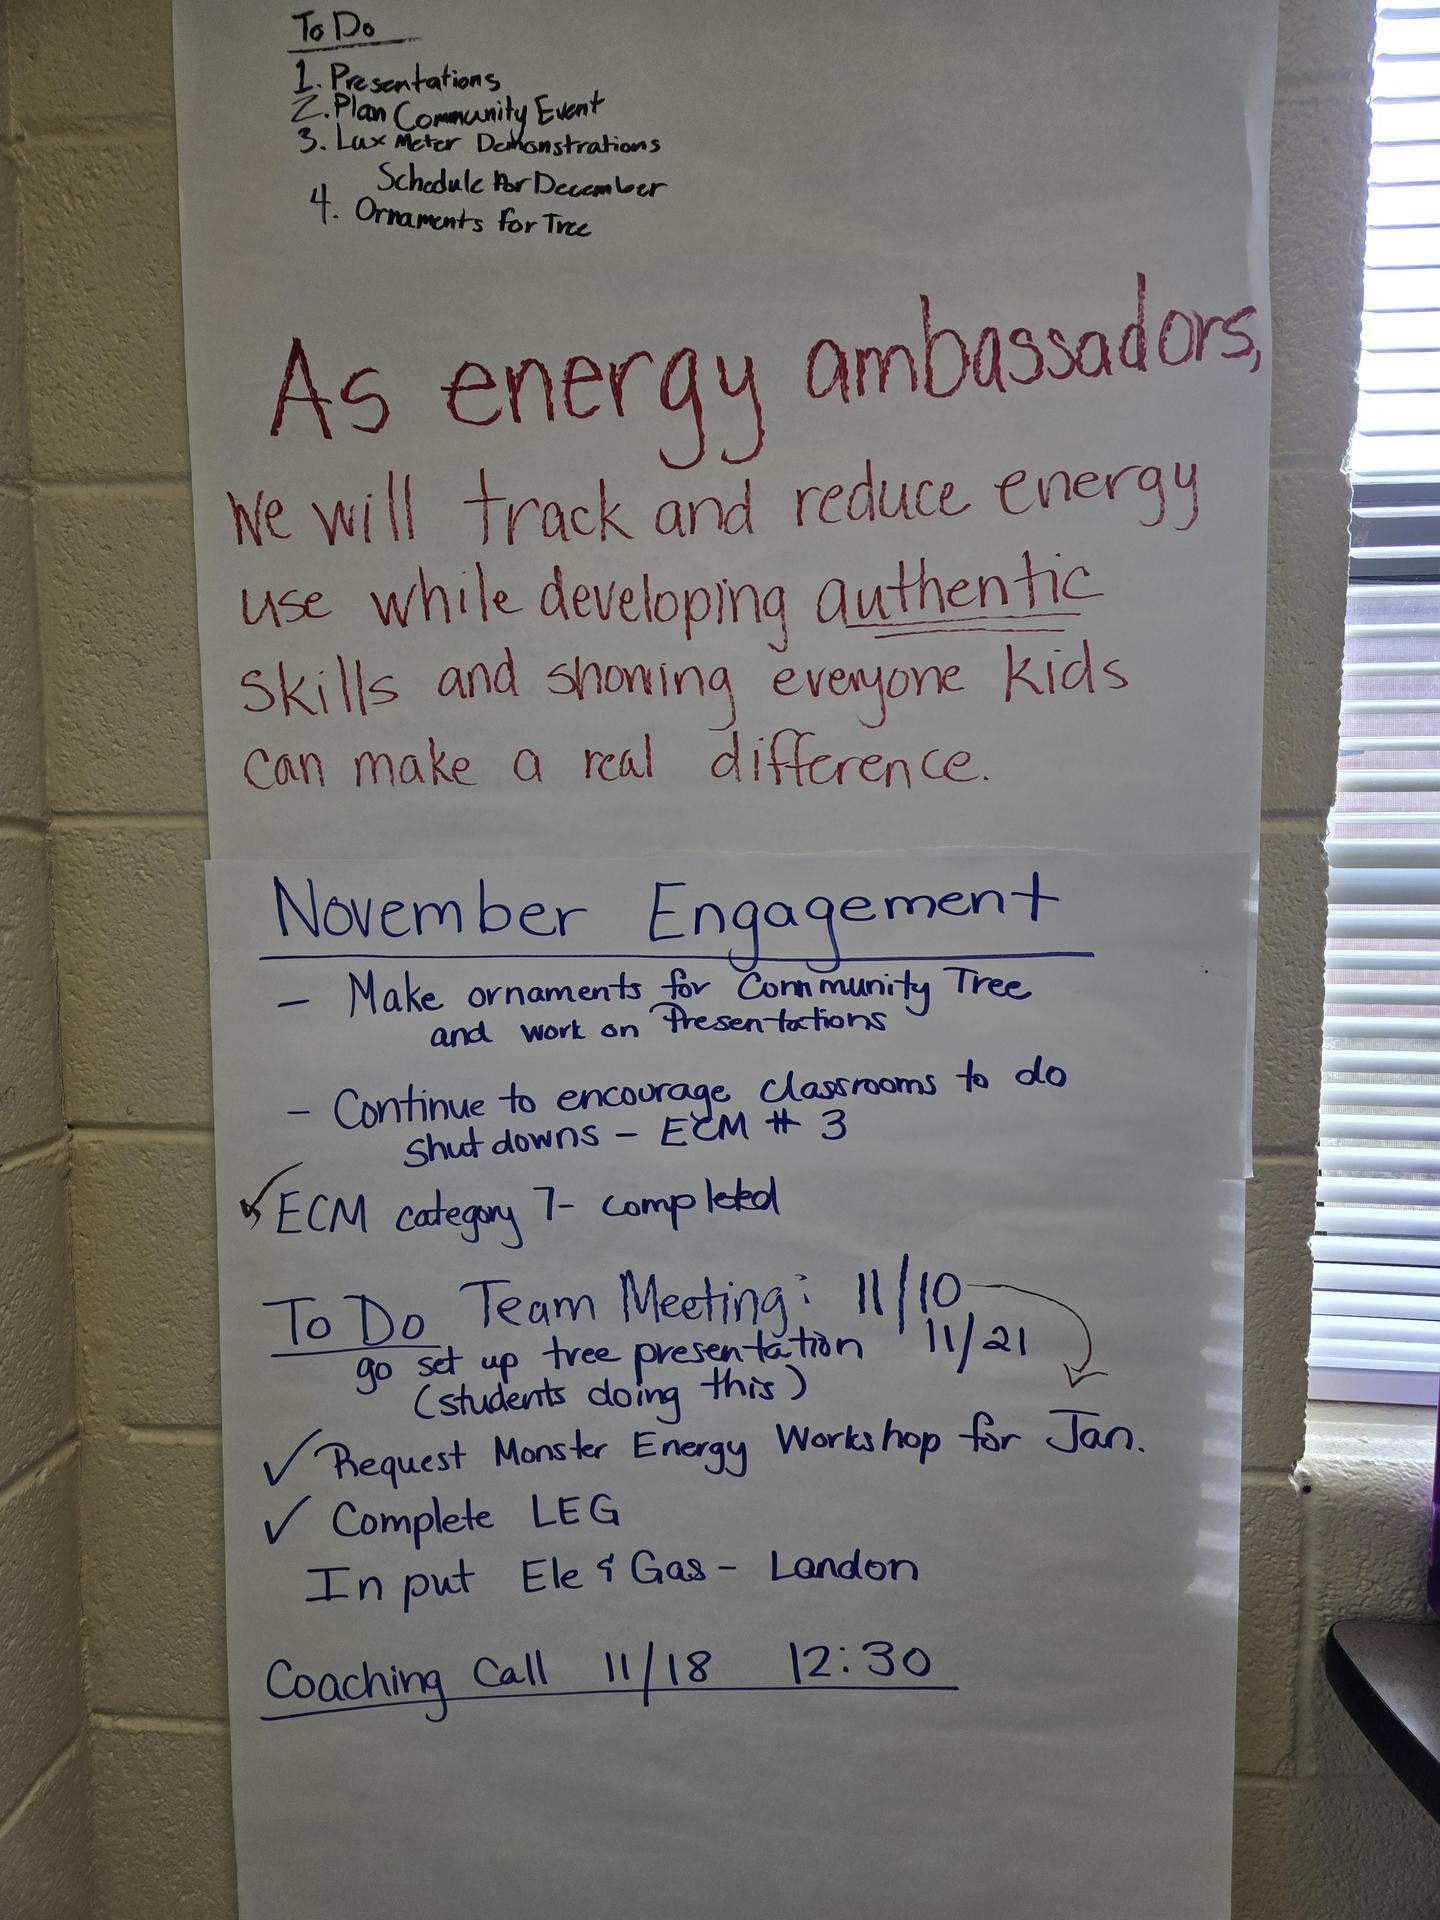 To Do
1. Presentations
2. Plan Community Event
3. Lux Meter Demonstrations
Schedule for December
4. Ornaments for Tree
As energy ambassadors,
We will track and reduce energy
use while developing authentic
skills and showing everyone kids
can make a real difference.
November Engagement
- Make ornaments for Community Tree
and work on Presentations
- Continue to encourage classrooms to do
shut downs - ECM # 3
✓ ECM category 7- completed
To Do Team Meeting: 11/10
go set up tree presentation 11/21
(students doing this)
✓ Request Monster Energy Workshop for Jan.
✓ Complete LEG
Input Ele & Gas - Landon
Coaching Call 11/18 12:30